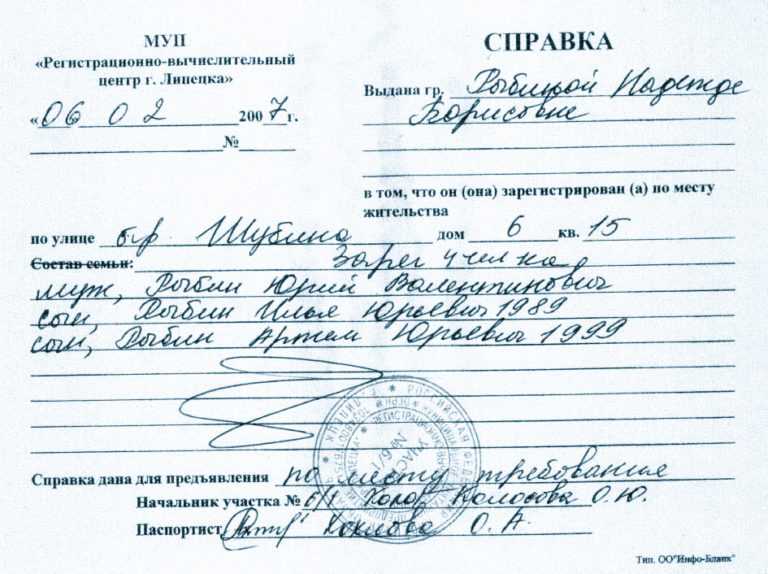 МУП
«Регистрационно-вычислительный
центр г. Липецка»
«06 02 2007г.
№
СПРАВКА
Выдана гр. Рыбиной Надежде
Борисовне
в том, что он (она) зарегистрирован (а) по месту
жительства
по улице б-р. Шубина дом 6 кв. 15
Состав семьи: Зарег 4 чел-ка
муж, Рыбин Юрий Валентинович
сын, Рыбин Илья Юрьевич 1989
сын, Рыбин Артем Юрьевич 1999
РОССИЙСКАЯ ФЕДЕ
Справка дана для предъявления по месту требования
Начальник участка № 6/1 Колосова О.Ю.
Паспортист О. А.
Тип. ОО"Инфо-Бланк"